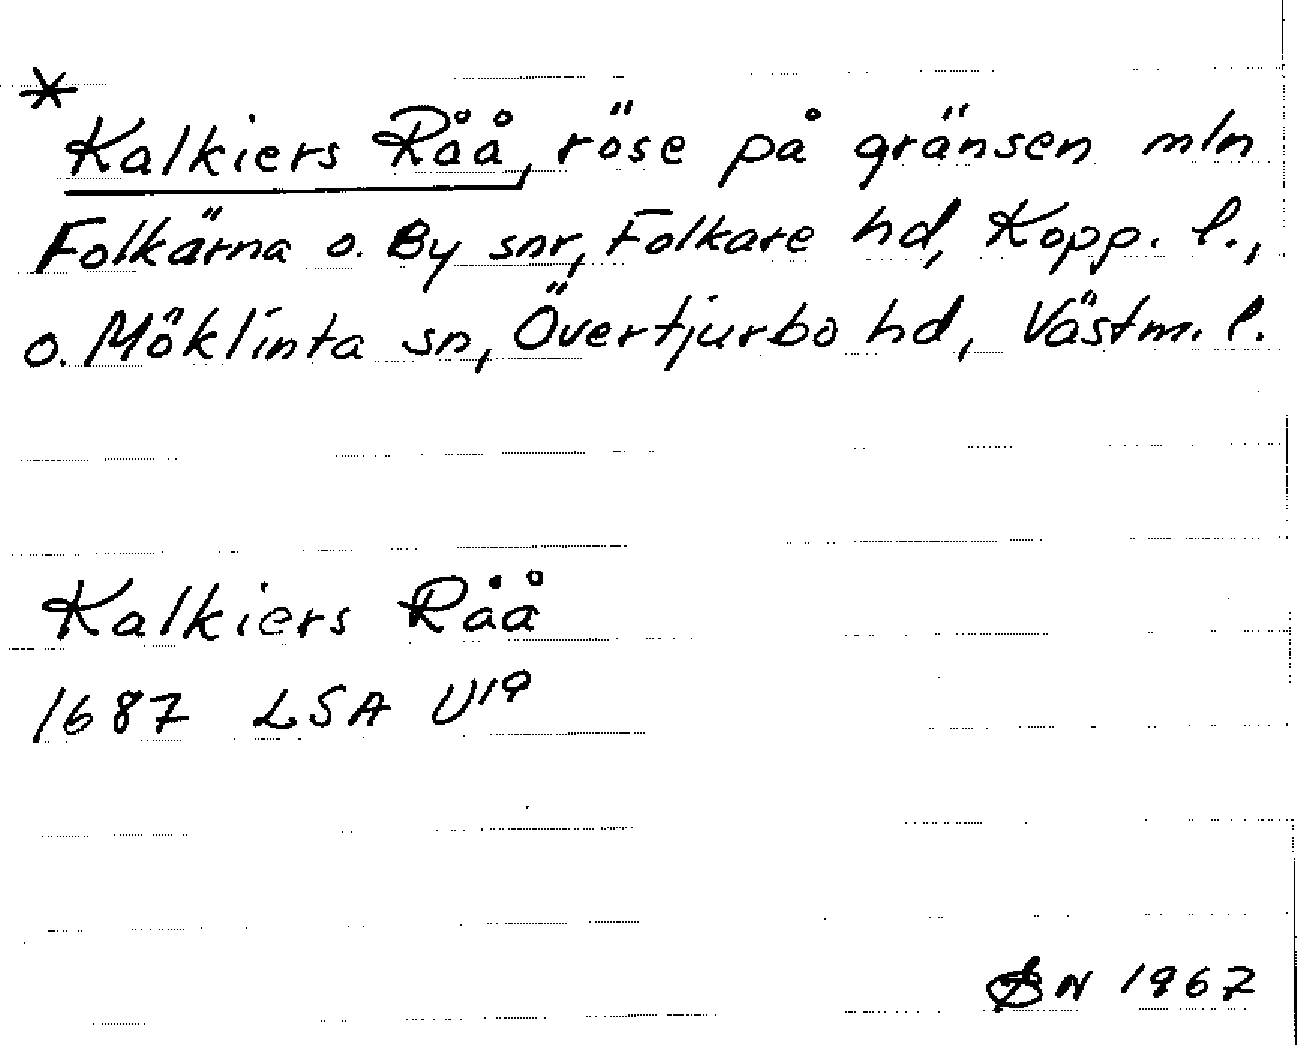 *
Kalkiers Råå, röse på gränsen mln
Folkärna o. By snr, Folkare hd, Kopp. l.,
o. Möklinta sn, Övertjurbo hd, Västm. l.
Kalkiers Råå
1687 LSA U19
SN 1967